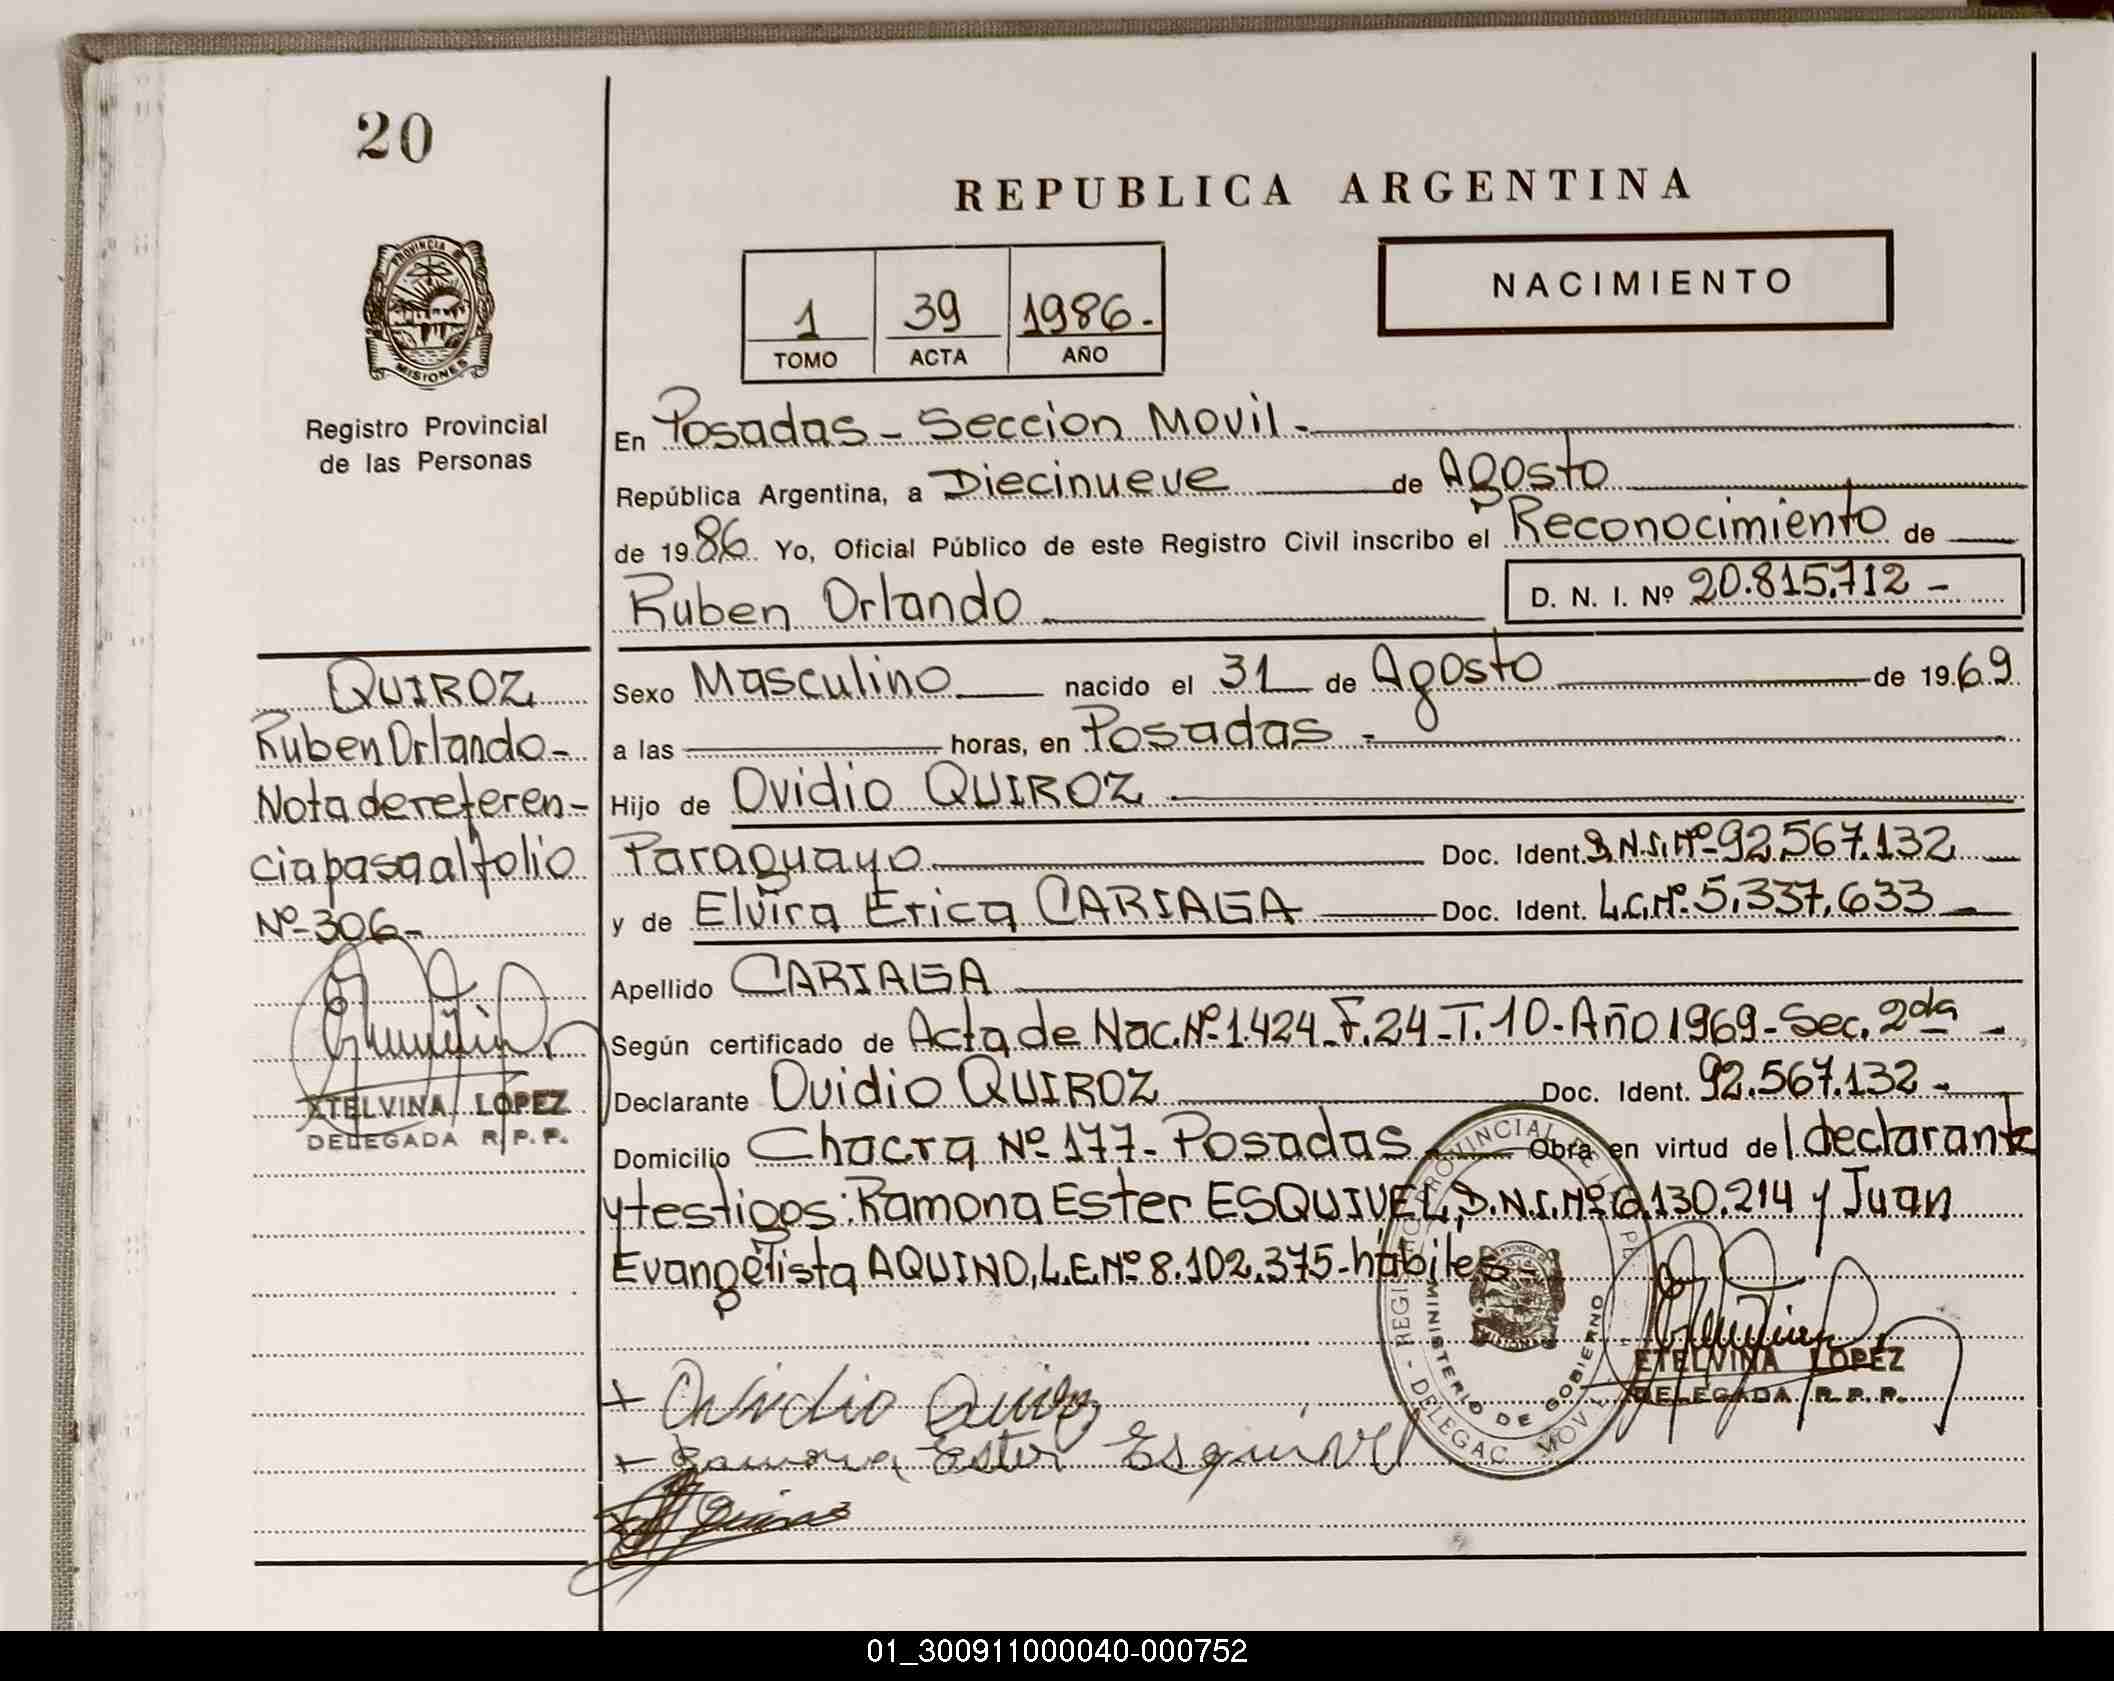 20
REPUBLICA ARGENTINA
NACIMIENTO
1 39 1986.-
TOMO ACTA AÑO
PROVINCIA DE
MISIONES
Registro Provincial
de las Personas
En Posadas - Seccion Movil.-
República Argentina, a Diecinueve de Agosto
de 1986. Yo, Oficial Público de este Registro Civil inscribo el Reconocimiento de
Ruben Orlando D. N. I. Nº 20.815.712 -
Sexo Masculino nacido el 31 de Agosto de 1969
a las horas, en Posadas -
Hijo de Ovidio QUIROZ
Paraguayo Doc. Ident. D.N.I.Nº-92.567.132
y de Elvira Erica CARIAGA Doc. Ident. L.C.Nº.5.337.633
Apellido CARIAGA
Según certificado de Acta de Nac.Nº1.424-F.24-T.10-Año 1969-Sec. 2da -
Declarante Ovidio QUIROZ Doc. Ident. 92.567.132 -
Domicilio Chacra Nº 177- Posadas Obra en virtud del declarante
y testigos: Ramona Ester ESQUIVEL, D.N.I.Nº 6.130.214 y Juan
Evangelista AQUINO, L.E.Nº 8.102.375-hábiles-
QUIROZ
Ruben Orlando-
Nota de referen-
cia pasa al folio
Nº-306-
ETELVINA LOPEZ
DELEGADA R.P.P.
MINISTERIO DE GOBIERNO
ETELVINA LOPEZ
DELEGADA R.P.P.
+ Ovidio Quiroz
+ Ramona Ester Esquivel
01_300911000040-000752